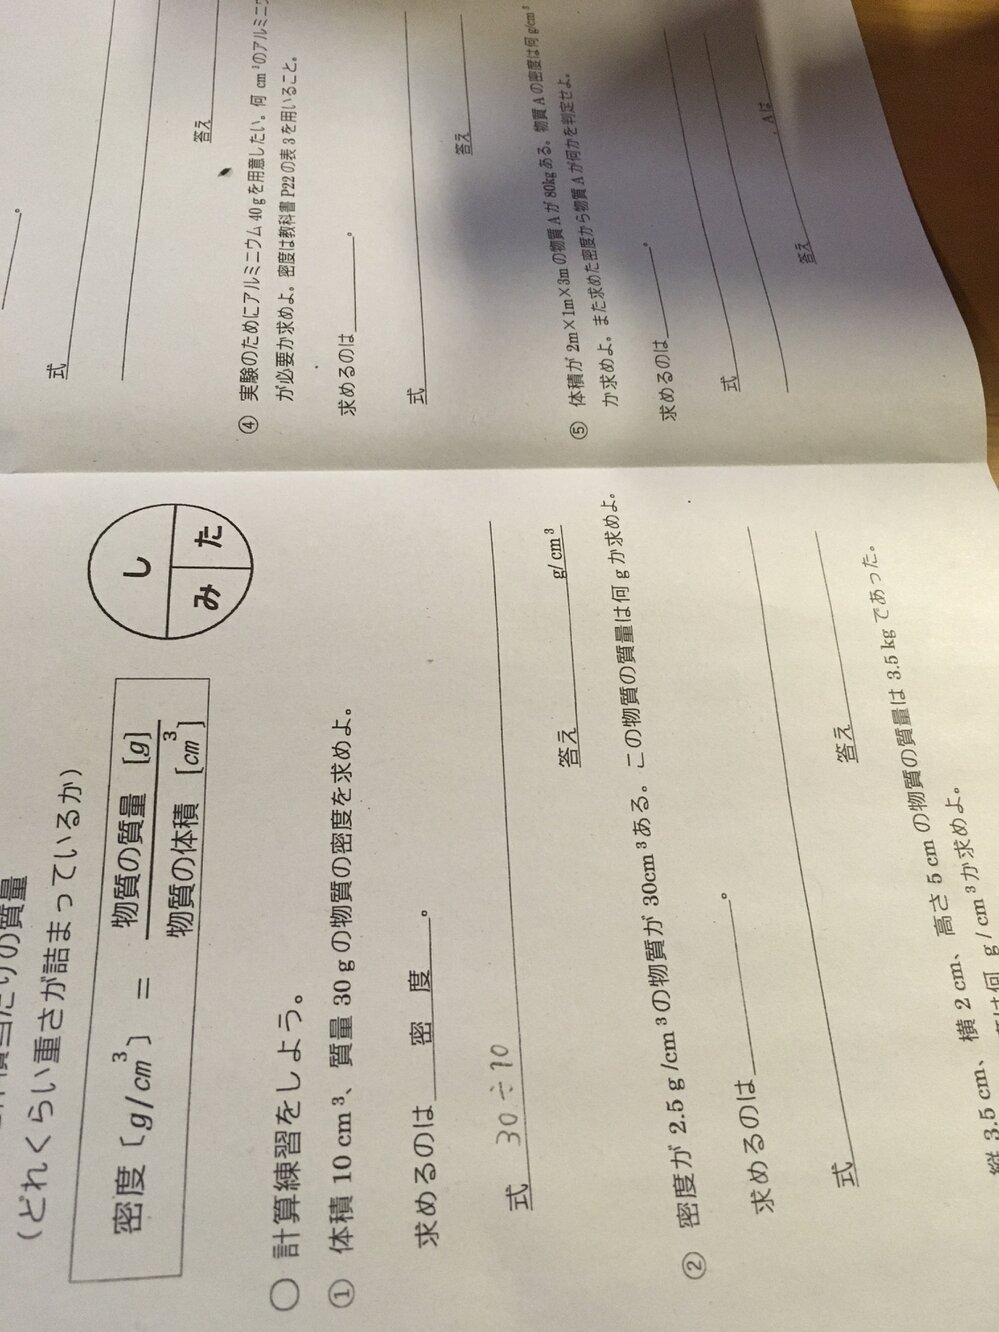 (どれくらい重さが詰まっているか)
密度〔g/cm³〕 = 物質の質量 [g]
物質の体積 [cm³]
し
み た
○ 計算練習をしよう。
① 体積 10 cm³、質量 30 g の物質の密度を求めよ。
求めるのは 密 度 。
式 30÷10
答え g/cm³
② 密度が 2.5 g /cm³の物質が 30cm³ある。この物質の質量は何 g か求めよ。
求めるのは 。
式
答え
縦 3.5 cm、 横 2 cm、 高さ 5 cm の物質の質量は 3.5 kg であった。
は何 g / cm³か求めよ。
。
式
答え
④ 実験のためにアルミニウム 40 g を用意したい。何 cm³のアルミニウ
が必要か求めよ。密度は教科書 P22 の表 3 を用いること。
求めるのは 。
式
答え
⑤ 体積が 2m×1m×3m の物質 A が 80kg ある。物質 A の密度は何 g/cm³
か求めよ。また求めた密度から物質 A が何かを判定せよ。
求めるのは 。
式
答え , A は